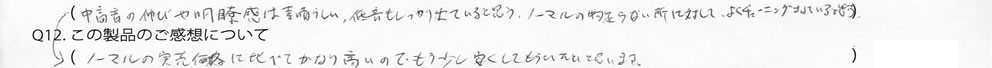 (中高音の伸びや明瞭感は素晴らしい、低音もしっかり出ていると思う。ノーマルの物足らない所に対して、よくチューニングされていると思う)
Q12. この製品のご感想について
(ノーマルの実売価格に比べてかなり高いのでもう少し安くしてもらいたいと思います。)